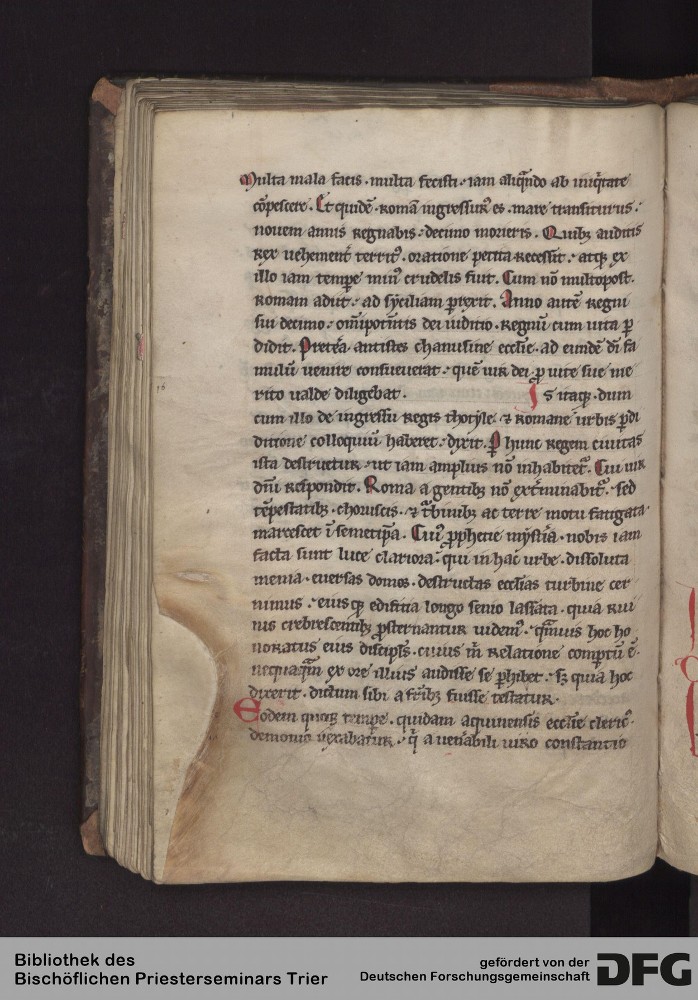 Multa mala facis · multa fecisti · iam aliqn̄do ab iniq̇tate
cōpescere. Et quidē · romā ingressurꝰ es · mare transiturus ·
nouem annis regnabis · decimo morieris. Quibꝫ auditis
rex uehement̄ territꝰ · oratione petita recessit · atqꝫ ex
illo iam tempe minꝰ crudelis fuit. Cum nō multopost ·
romam adiit · ad syciliam ꝑrexit. Anno autē regni
sui decimo · om̄ipotn̄tis dei iuditio · regnū cum uita ꝑ
didit. Pretea antistes chanusine eccl̄ie · ad eundē dn̄i fa
mulū uenire consueuerat · quē uir dei ꝓ uite sue me
rito ualde diligebat. Is itaqꝫ · dum
cum illo de ingressu regis thotyle · ⁊ romane urbis ꝑdi
ditione colloquiū haberet · dixit. Ꝑ hunc regem ciuitas
ista destruetur · ut iam amplius nō inhabitet᷑. Cui uir
dn̄i respondit. Roma a gentibꝫ nō ext̄minabit᷑ · sed
tēpestatibꝫ · choruscis · ⁊ tᷣbinibꝫ ac terre motu fatigata ·
marcescet ī semetip̄a. Cuiꝰ ꝓphetie mysṫia · nobis iam
facta sunt luce clariora · qui in hac urbe · dissoluta
menia · euersas domos · destructas ecclesias turbine cer
nimus · eiusqꝫ edifitia longo senio lassata · quia rui
nis crebrescentibꝫ ꝓsternantur uidemꝰ · qm̄uis hoc ho
noratus eius discipl̄s · cuius m̄ relatione comꝑtū ē ·
nequaqm̄ ex ore illius audisse se ꝑhibet · sꝫ quia hoc
dixerit · dictum sibi a fr̄ibꝫ fuisse testatur ·
Eodem quoqꝫ tempe · quidam aquinensis eccl̄ie clericꝰ ·
demonio uexabatur · q̇ a uen̄abili uiro constantio
Bibliothek des
Bischöflichen Priesterseminars Trier
gefördert von der
Deutschen Forschungsgemeinschaft
DFG